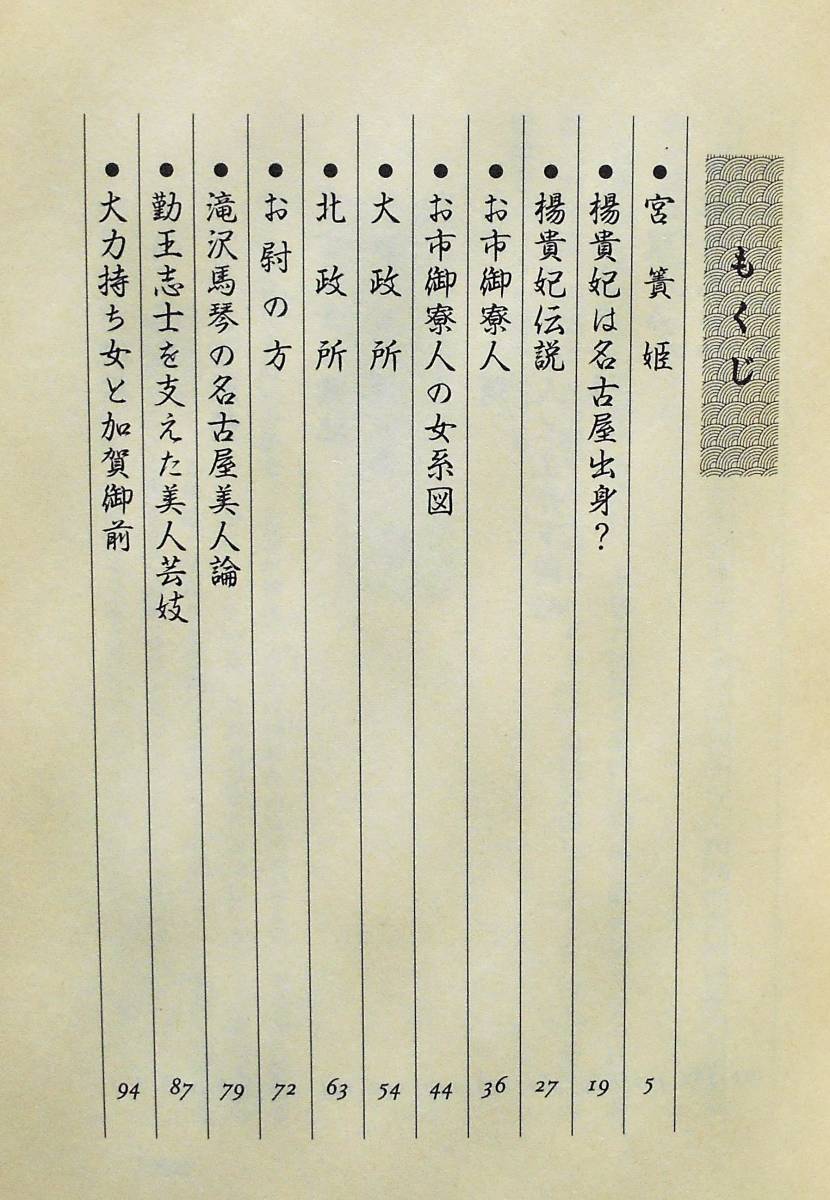 もくじ
● 宮簀姫 5
● 楊貴妃は名古屋出身? 19
● 楊貴妃伝説 27
● お市御寮人 36
● お市御寮人の女系図 44
● 大政所 54
● 北政所 63
● お尉の方 72
● 滝沢馬琴の名古屋美人論 79
● 勤王志士を支えた美人芸妓 87
● 大力持ち女と加賀御前 94